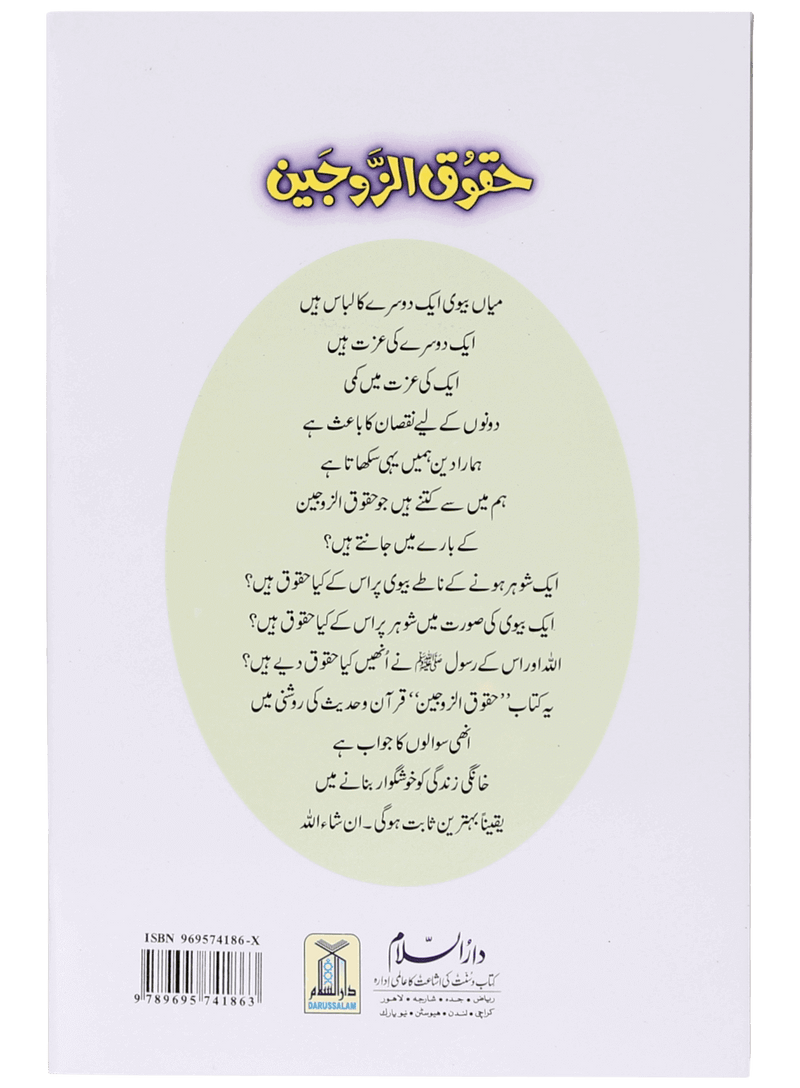 حقوُق الزَّوجَین
میاں بیوی ایک دوسرے کا لباس ہیں
ایک دوسرے کی عزت ہیں
ایک کی عزت میں کمی
دونوں کے لیے نقصان کا باعث ہے
ہمارا دین ہمیں یہی سکھاتا ہے
ہم میں سے کتنے ہیں جو حقوق الزوجین
کے بارے میں جانتے ہیں؟
ایک شوہر ہونے کے ناطے بیوی پر اس کے کیا حقوق ہیں؟
ایک بیوی کی صورت میں شوہر پر اس کے کیا حقوق ہیں؟
اللہ اور اس کے رسول ﷺ نے اُنھیں کیا حقوق دیے ہیں؟
یہ کتاب ’’حقوق الزوجین‘‘ قرآن و حدیث کی روشنی میں
انھی سوالوں کا جواب ہے
خانگی زندگی کو خوشگوار بنانے میں
یقیناً بہترین ثابت ہوگی۔ ان شاء اللہ
ISBN 969574186-X
9 789695 741863
دارالسلام
DARUSSALAM
دارُالسّلام
کتاب و سنت کی اشاعت کا عالمی ادارہ
ریاض • جدہ • شارجہ • لاہور
کراچی • لندن • ہیوسٹن • نیو یارک